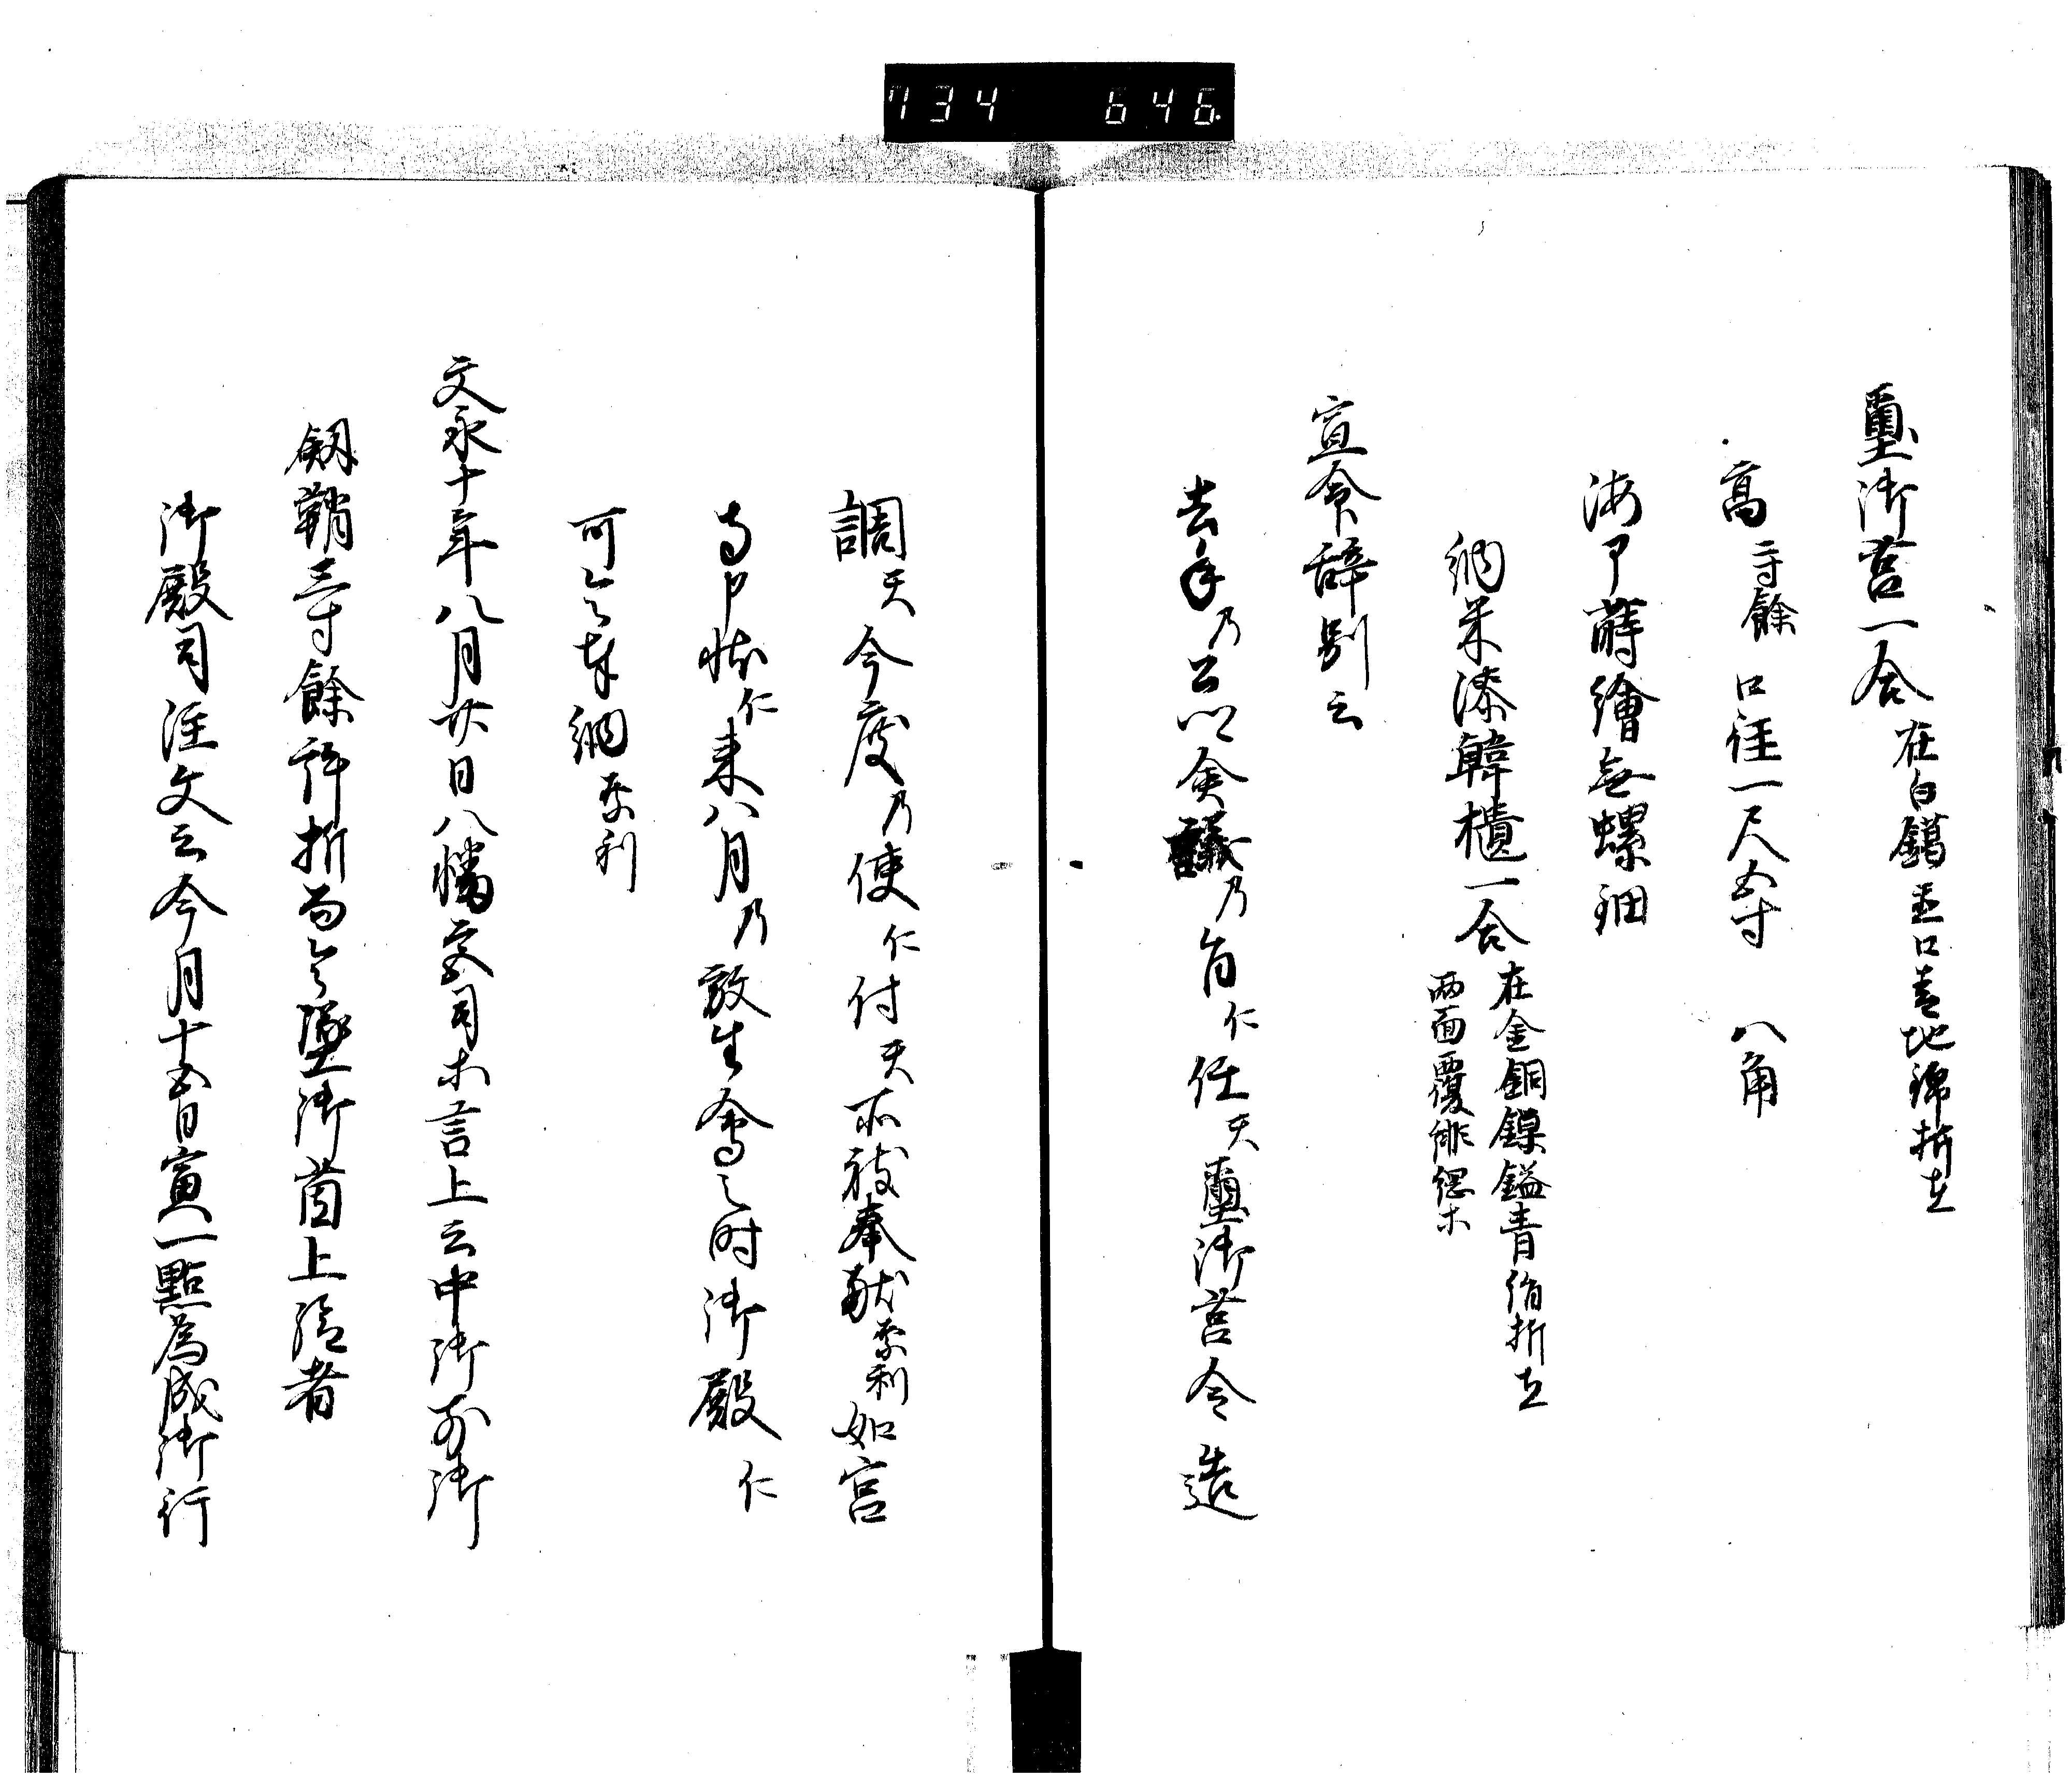 734 646
璽御筥一合在白鑞置口青地錦折立
高 寸餘 口径一尺五寸 八角
海 蒔繪無螺鈿
納朱漆韓櫃一合在金銅鏁鎰青絹折立
両面覆緋綱木
宣命辞別云
去年乃公以僉議乃旨仁任天璽御筥令造
調天今度乃使仁付天所被奉献奈利如宮
寺申状仁来八月乃放生會之時御殿仁
可令奉納奈利
文永十年八月廿日八幡宮司木言上云中御前御
劔鞘三寸餘許折而令墜御茵上給者
御殿司注文云今月十五日寅一點為成御行